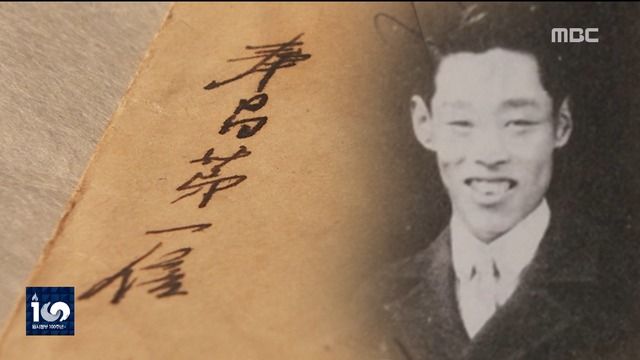 奉昌第一信
MBC
100
임시정부 100주년